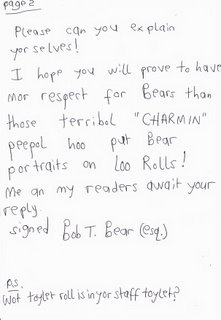 page 2
Please can you explain
yorselves!
I hope you will prove to have
mor respect for Bears than
those terribol "CHARMIN"
peepol hoo put Bear
portraits on Loo Rolls!
Me an my readers await your
reply.
signed Bob T. Bear (esq.)
P.S.
Wot toylet roll is in yor staff toylet?